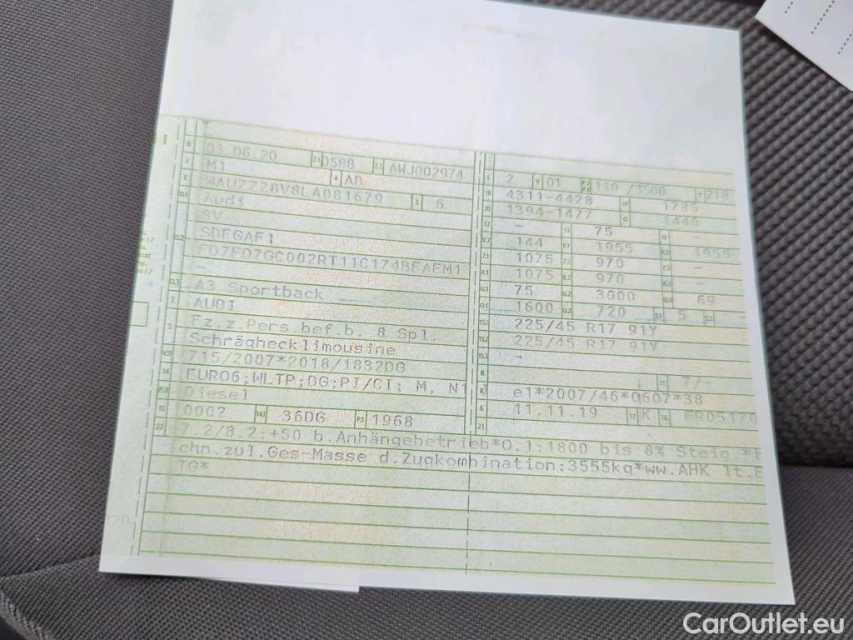 03.06.20 0588 AWJ002974
M1 AB
WAUZZZ8V8LA081679 6
Audi
8V
SDFGAF1
FD7FD7GC002RT11C174BFAFM1
-
A3 Sportback
AUDI
Fz.z.Pers.bef.b. 8 Spl.
Schräghecklimousine
715/2007*2018/1832DG
EURO6;WLTP;DG:PI/CI; M, N1
Diesel
0002 36DG 1968
2 01 110 /3500 218
4311-4428 1785
1394-1477 1440
- 75 -
144 1955 1955
1075 970 -
1075 970 -
75 3000 69
1600 720 5
225/45 R17 91Y
225/45 R17 91Y
-
7/-
e1*2007/46*0607*38
11.11.19 K
7.2/8.2:+50 b.Anhängebetrieb*O.1:1800 bis 8% Steig.*
chn.zul.Ges-Masse d.Zugkombination:3555kg*ww.AHK lt.E
TG*
CarOutlet.eu